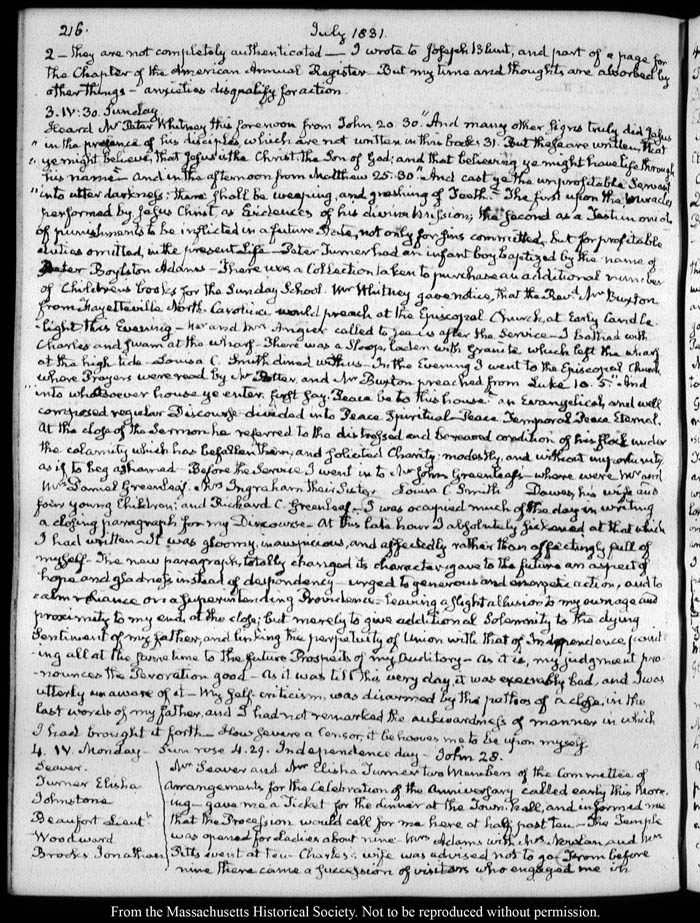 216.
July 1831.
2 – they are not completely authenticated — I wrote to Joseph Blunt, and part of a page for
the Chapter of the American Annual Register – But my time and thoughts are absorbed by
other things – anxieties disqualify for action.
3. IV: 30. Sunday.
Heard Mr Peter Whitney this forenoon from John 20. 30 "And many other signs truly did Jesus
" in the presence of his disciples, which are not written in this book. 31. But these are written, that
" ye might believe, that Jesus is the Christ the Son of God; and that believing ye might have life through
" his name" – and in the afternoon from Matthew 25. 30 "And cast ye the unprofitable Servant
" into utter darkness: there shall be weeping, and gnashing of Teeth." The first upon the miracles
performed by Jesus Christ as Evidences of his divine Mission; the second as a Testimonial
of punishments to be inflicted in a future State, not only for sins committed, but for profitable
duties omitted, in the present Life – Peter Turner had an infant boy baptized by the name of
Peter Boylston Adams – There was a Collection taken to purchase an additional number
of Childrens books for the Sunday School. Mr Whitney gave notice, that the Revd Mr Buxton
from Fayetteville North-Carolina would preach at the Episcopal Church, at Early Candle
-light this Evening – and Mrs Angier called to see us after the Service – I bathed with
Charles and swam at the wharf – There was a Sloop, laden with Granite which left the wharf
at the high tide – Louisa C. Smith dined with us – In the Evening I went to the Episcopal Church
where Prayers were read by Mr Potter, and Mr Buxton preached from Luke 10. 5. "And
" into whatsoever house ye enter, first say, Peace be to this house" an Evangelical, and well
composed regular Discourse divided into Peace Spiritual – Peace Temporal Peace Eternal.
At the close of the Sermon he referred to the distressed and bereaved condition of his flock under
the calamity which has befallen them, and solicited Charity; modestly, and without importunity
as if to beg ashamed – Before the Service I went in to Mr John Greenleaf's – where were Mr and
Mrs Daniel Greenleaf. Mrs Ingraham their Sister, Louisa C. Smith Dawes, his wife and
four young Children; and Richard C. Greenleaf – I was occupied much of the day in writing
a closing paragraph for my Discourse – At this late hour I absolutely sickened at that which
I had written – It was gloomy, inauspicious, and affectedly rather than affectingly full of
myself – The new paragraph totally changed its character gave to the future an aspect of
hope and gladness instead of despondency – urged to generous and energetic action, and to
calm reliance on a superintending Providence – leaving a slight allusion to my own age and
proximity to my end, at the close; but merely to give additional solemnity to the dying
Sentiment of my father, and linking the perpetuity of Union with that of Independence point
-ing all at the same time to the future Prospects of my Auditory – As it is, my judgment pro-
-nounces the Peroration good – As it was till this very day, it was execrably bad, and I was
utterly unaware of it – My self criticism, was disarmed by the pathos of a close, in the
last words of my father, and I had not remarked the awkwardness of manner in which
I had brought it forth – How severe a Censor, it behooves me to be upon myself.
4. IV. Monday – Sun rose 4. 29. Independence day – John 28.
Seaver.
Turner Elisha
Johnstone
Beaufort Lieut.
Woodward
Brooks Jonathan
Mr Seaver and Mr Elisha Turner two Members of the Committee of
Arrangements for the Celebration of the Anniversary called early this morn-
ing – gave me a Ticket for the dinner at the Town Hall, and informed me
that the Procession would call for me here at half past ten – The Temple
was opened for Ladies about nine – Mrs Adams with Mrs and Mrs
Pitts went at ten – Charles's wife was advised not to go – From before
nine there came a succession of visitors who engaged me in
From the Massachusetts Historical Society. Not to be reproduced without permission.